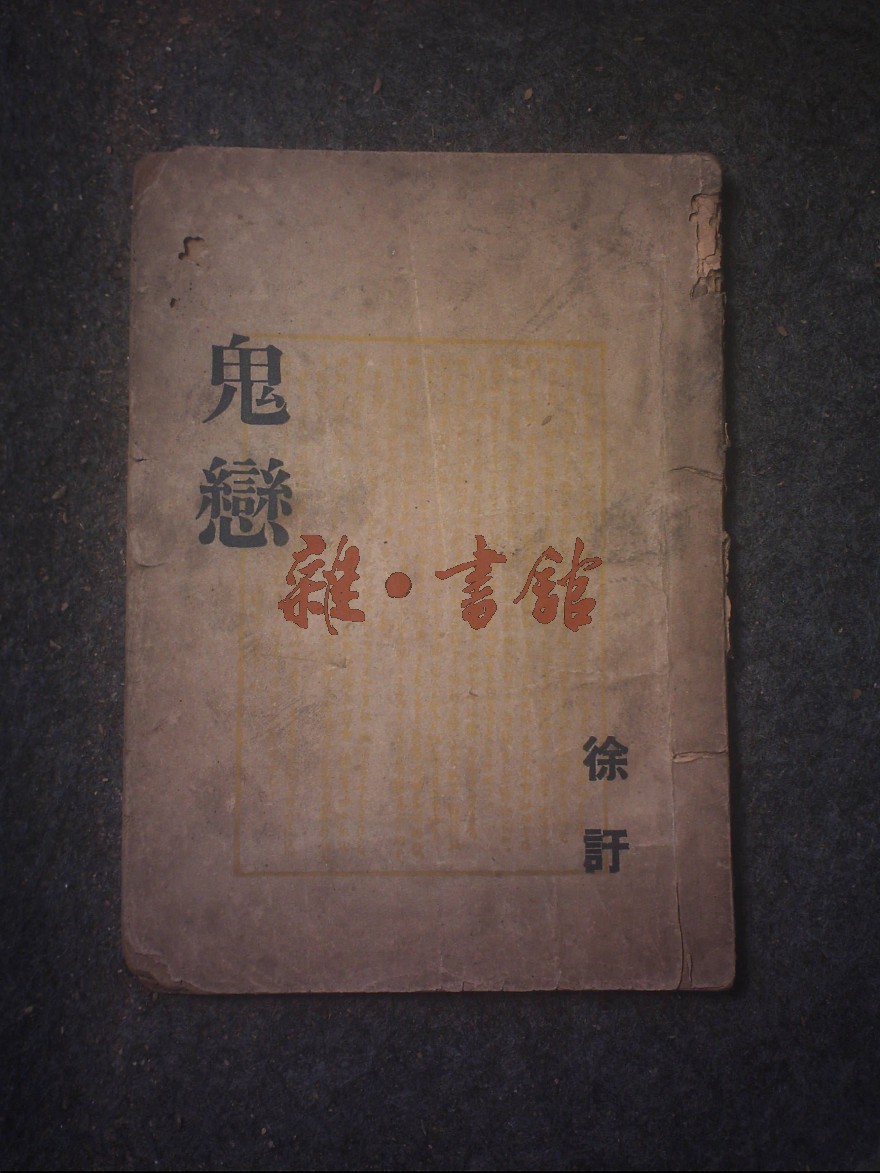 鬼戀
雜·書館
徐訏